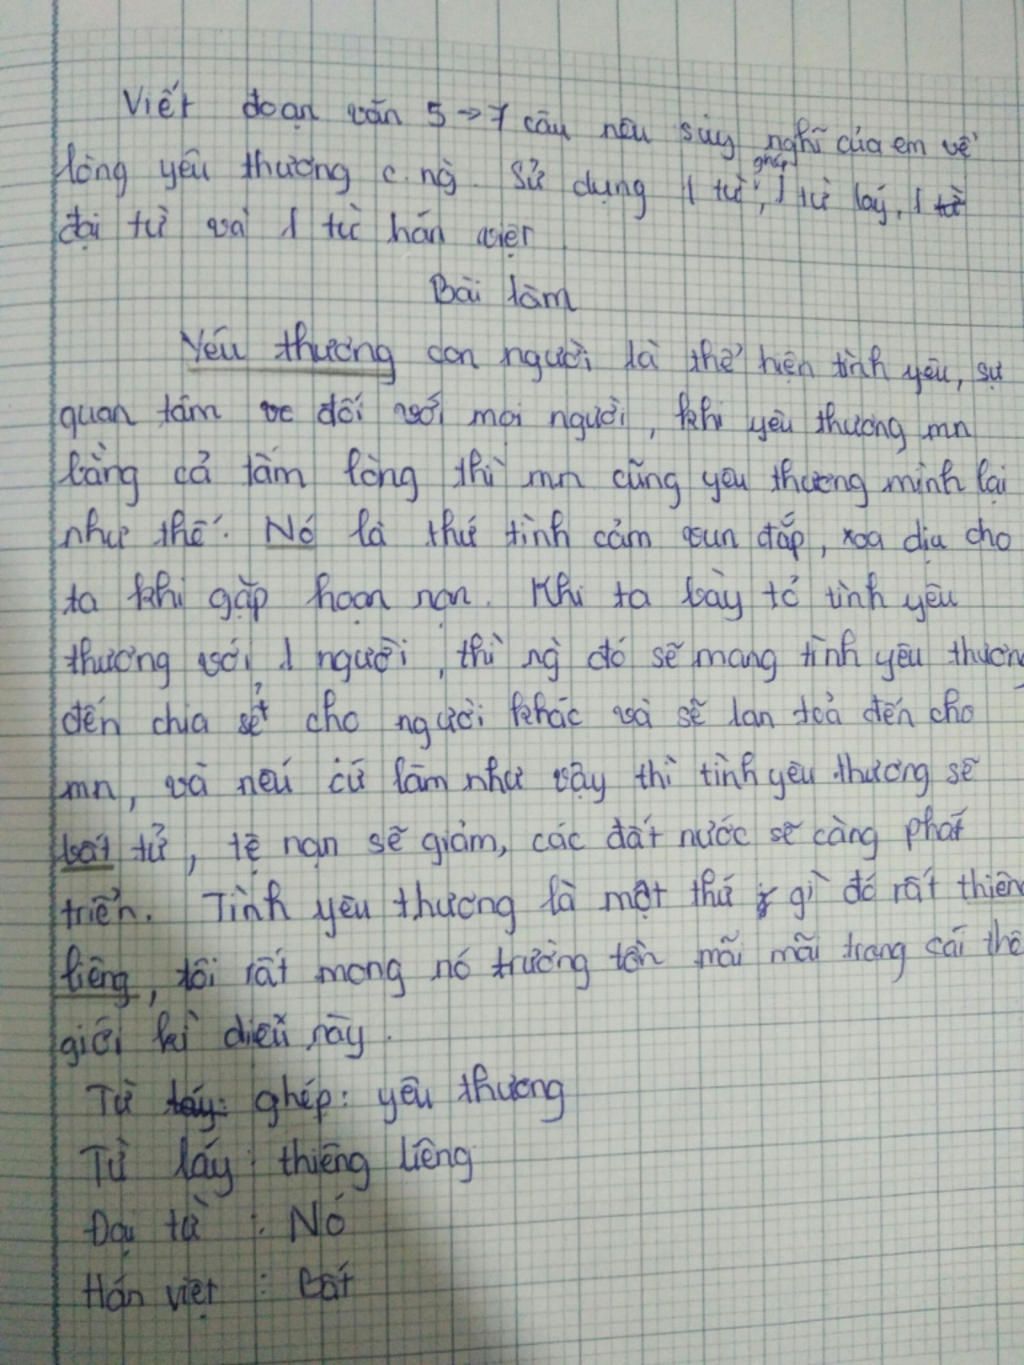 Viết đoạn văn 5 → 7 câu nêu suy nghĩ của em về
lòng yêu thương c.ng. Sử dụng 1 từ ghép, 1 từ láy, 1
đại từ và 1 từ hán việt
Bài làm
Yêu thương con người là thể hiện tình yêu, sự
quan tâm đối với mọi người, khi yêu thương mn
bằng cả tấm lòng thì mn cũng yêu thương mình lại
như thế. Nó là thứ tình cảm vun đắp, xoa dịu cho
ta khi gặp hoạn nạn. Khi ta bày tỏ tình yêu
thương với 1 người, thì ng đó sẽ mang tình yêu thương
đến chia sẻ cho người khác và sẽ lan toả đến cho
mn, và nếu cứ làm như vậy thì tình yêu thương sẽ
bất tử, tệ nạn sẽ giảm, các đất nước sẽ càng phát
triển. Tình yêu thương là một thứ gì đó rất thiêng
liêng, tôi rất mong nó trường tồn mãi mãi trong cái thế
giới kì diệu này.
Từ ghép: yêu thương
Từ láy: thiêng liêng
Đại từ: Nó
Hán việt: Bất